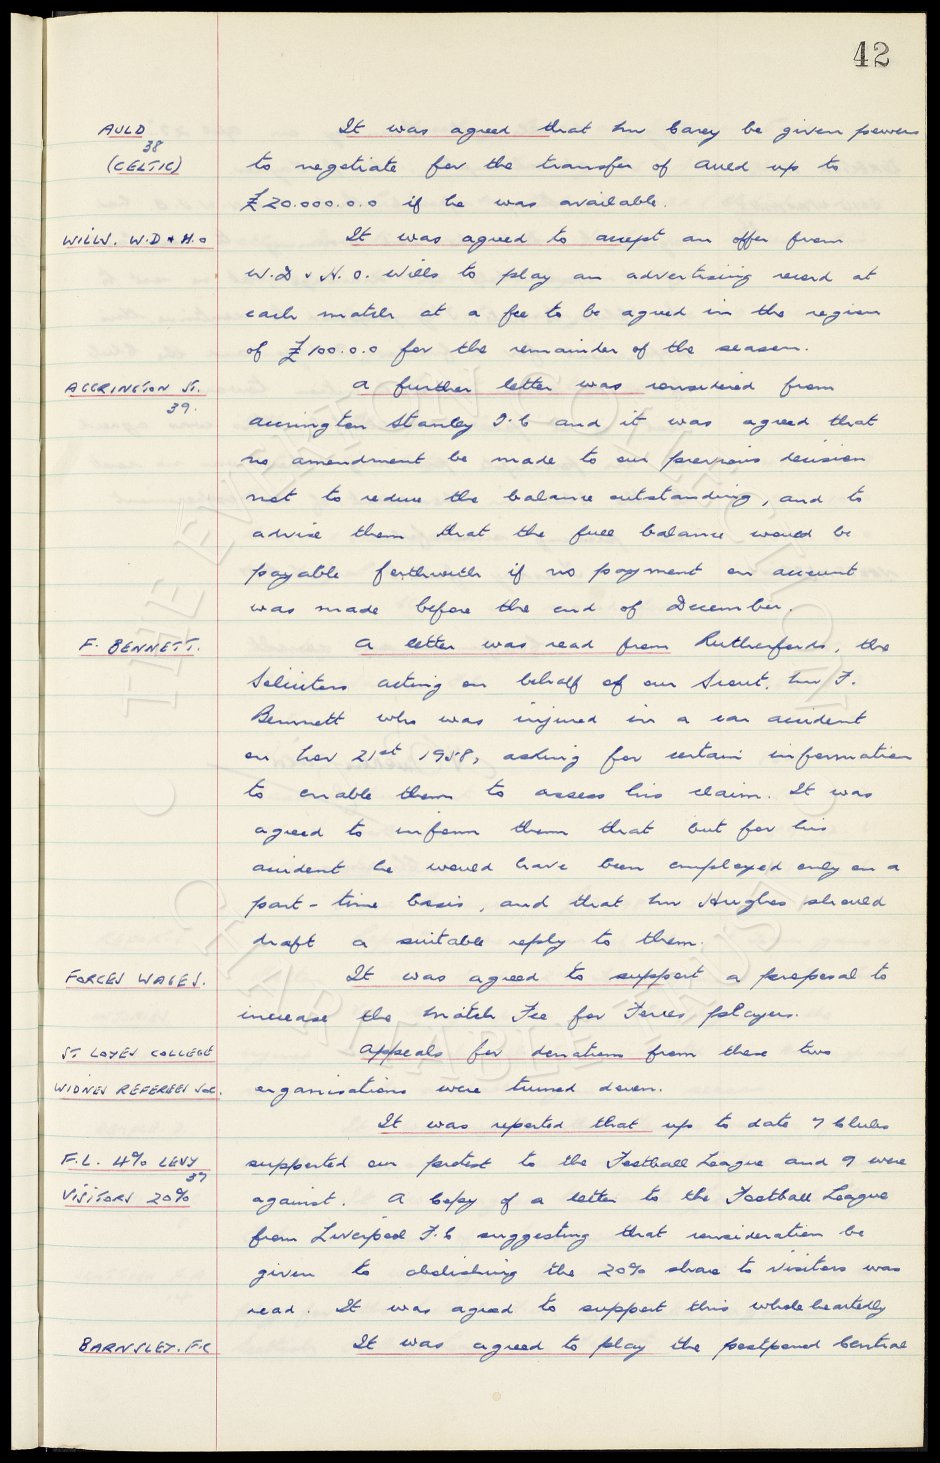 42
AULD It was agreed that Mr Carey be given powers
38
(CELTIC) to negotiate for the transfer of Auld up to
£20.000.0.0 if he was available.
WILLS. W.D & H.O It was agreed to accept an offer from
W.D & H.O. Wills to play an advertising record at
each match at a fee to be agreed in the region
of £100.0.0 for the remainder of the season.
ACCRINGTON ST. A further letter was considered from
39.
Accrington Stanley F.C and it was agreed that
no amendment be made to our previous decision
not to reduce the balance outstanding, and to
advise them that the full balance would be
payable forthwith if no payment on account
was made before the end of December.
F. BENNETT. A letter was read from Rutherfords, the
Solicitors acting on behalf of our Scout, Mr F.
Bennett who was injured in a car accident
on Nov 21st 1958, asking for certain information
to enable them to assess his claim. It was
agreed to inform them that but for his
accident he would have been employed only on a
part-time basis, and that Mr Hughes should
draft a suitable reply to them.
FORCES WAGES. It was agreed to support a proposal to
increase the Match Fee for Forces players.
ST LOYES COLLEGE Appeals for donations from these two
WIDNES REFEREES SOC. organisations were turned down.
It was reported that up to date 7 Clubs
F.L. 4% LEVY supported our protest to the Football League and 9 were
39
VISITORS 20% against. A Copy of a letter to the Football League
from Liverpool F.C suggesting that consideration be
given to abolishing the 20% share to visitors was
read. It was agreed to support this wholeheartedly
BARNSLEY. F.C It was agreed to play the postponed Central
THE EVERTON COLLECTION
CHARITABLE TRUST